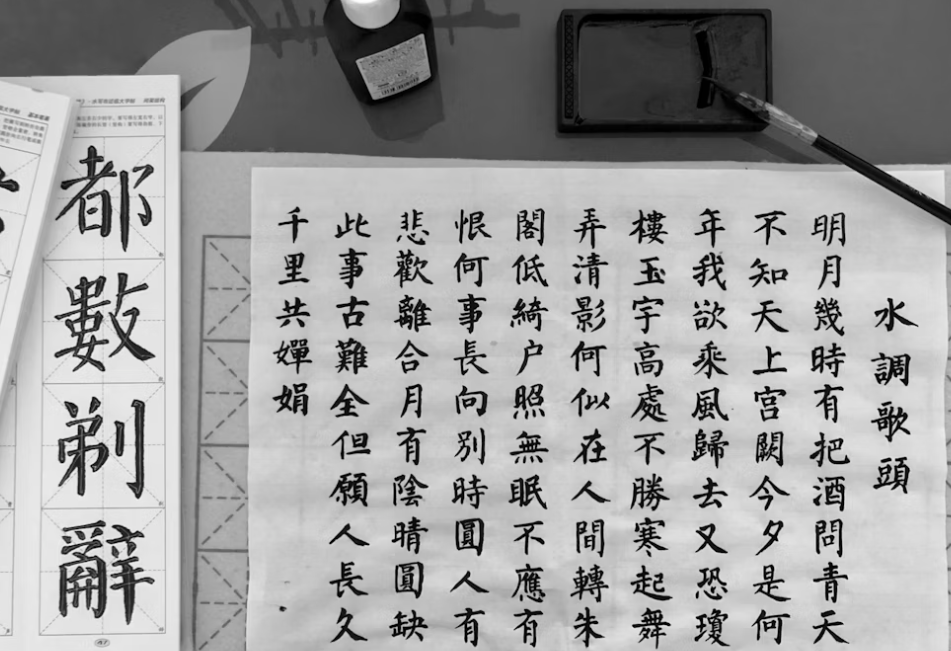 水調歌頭
明月幾時有把酒問青天
不知天上宮闕今夕是何
年我欲乘風歸去又恐瓊
樓玉宇高處不勝寒起舞
弄清影何似在人間轉朱
閣低綺户照無眠不應有
恨何事長向别時圓人有
悲歡離合月有陰晴圓缺
此事古難全但願人長久
千里共嬋娟
都
數
剃
辭